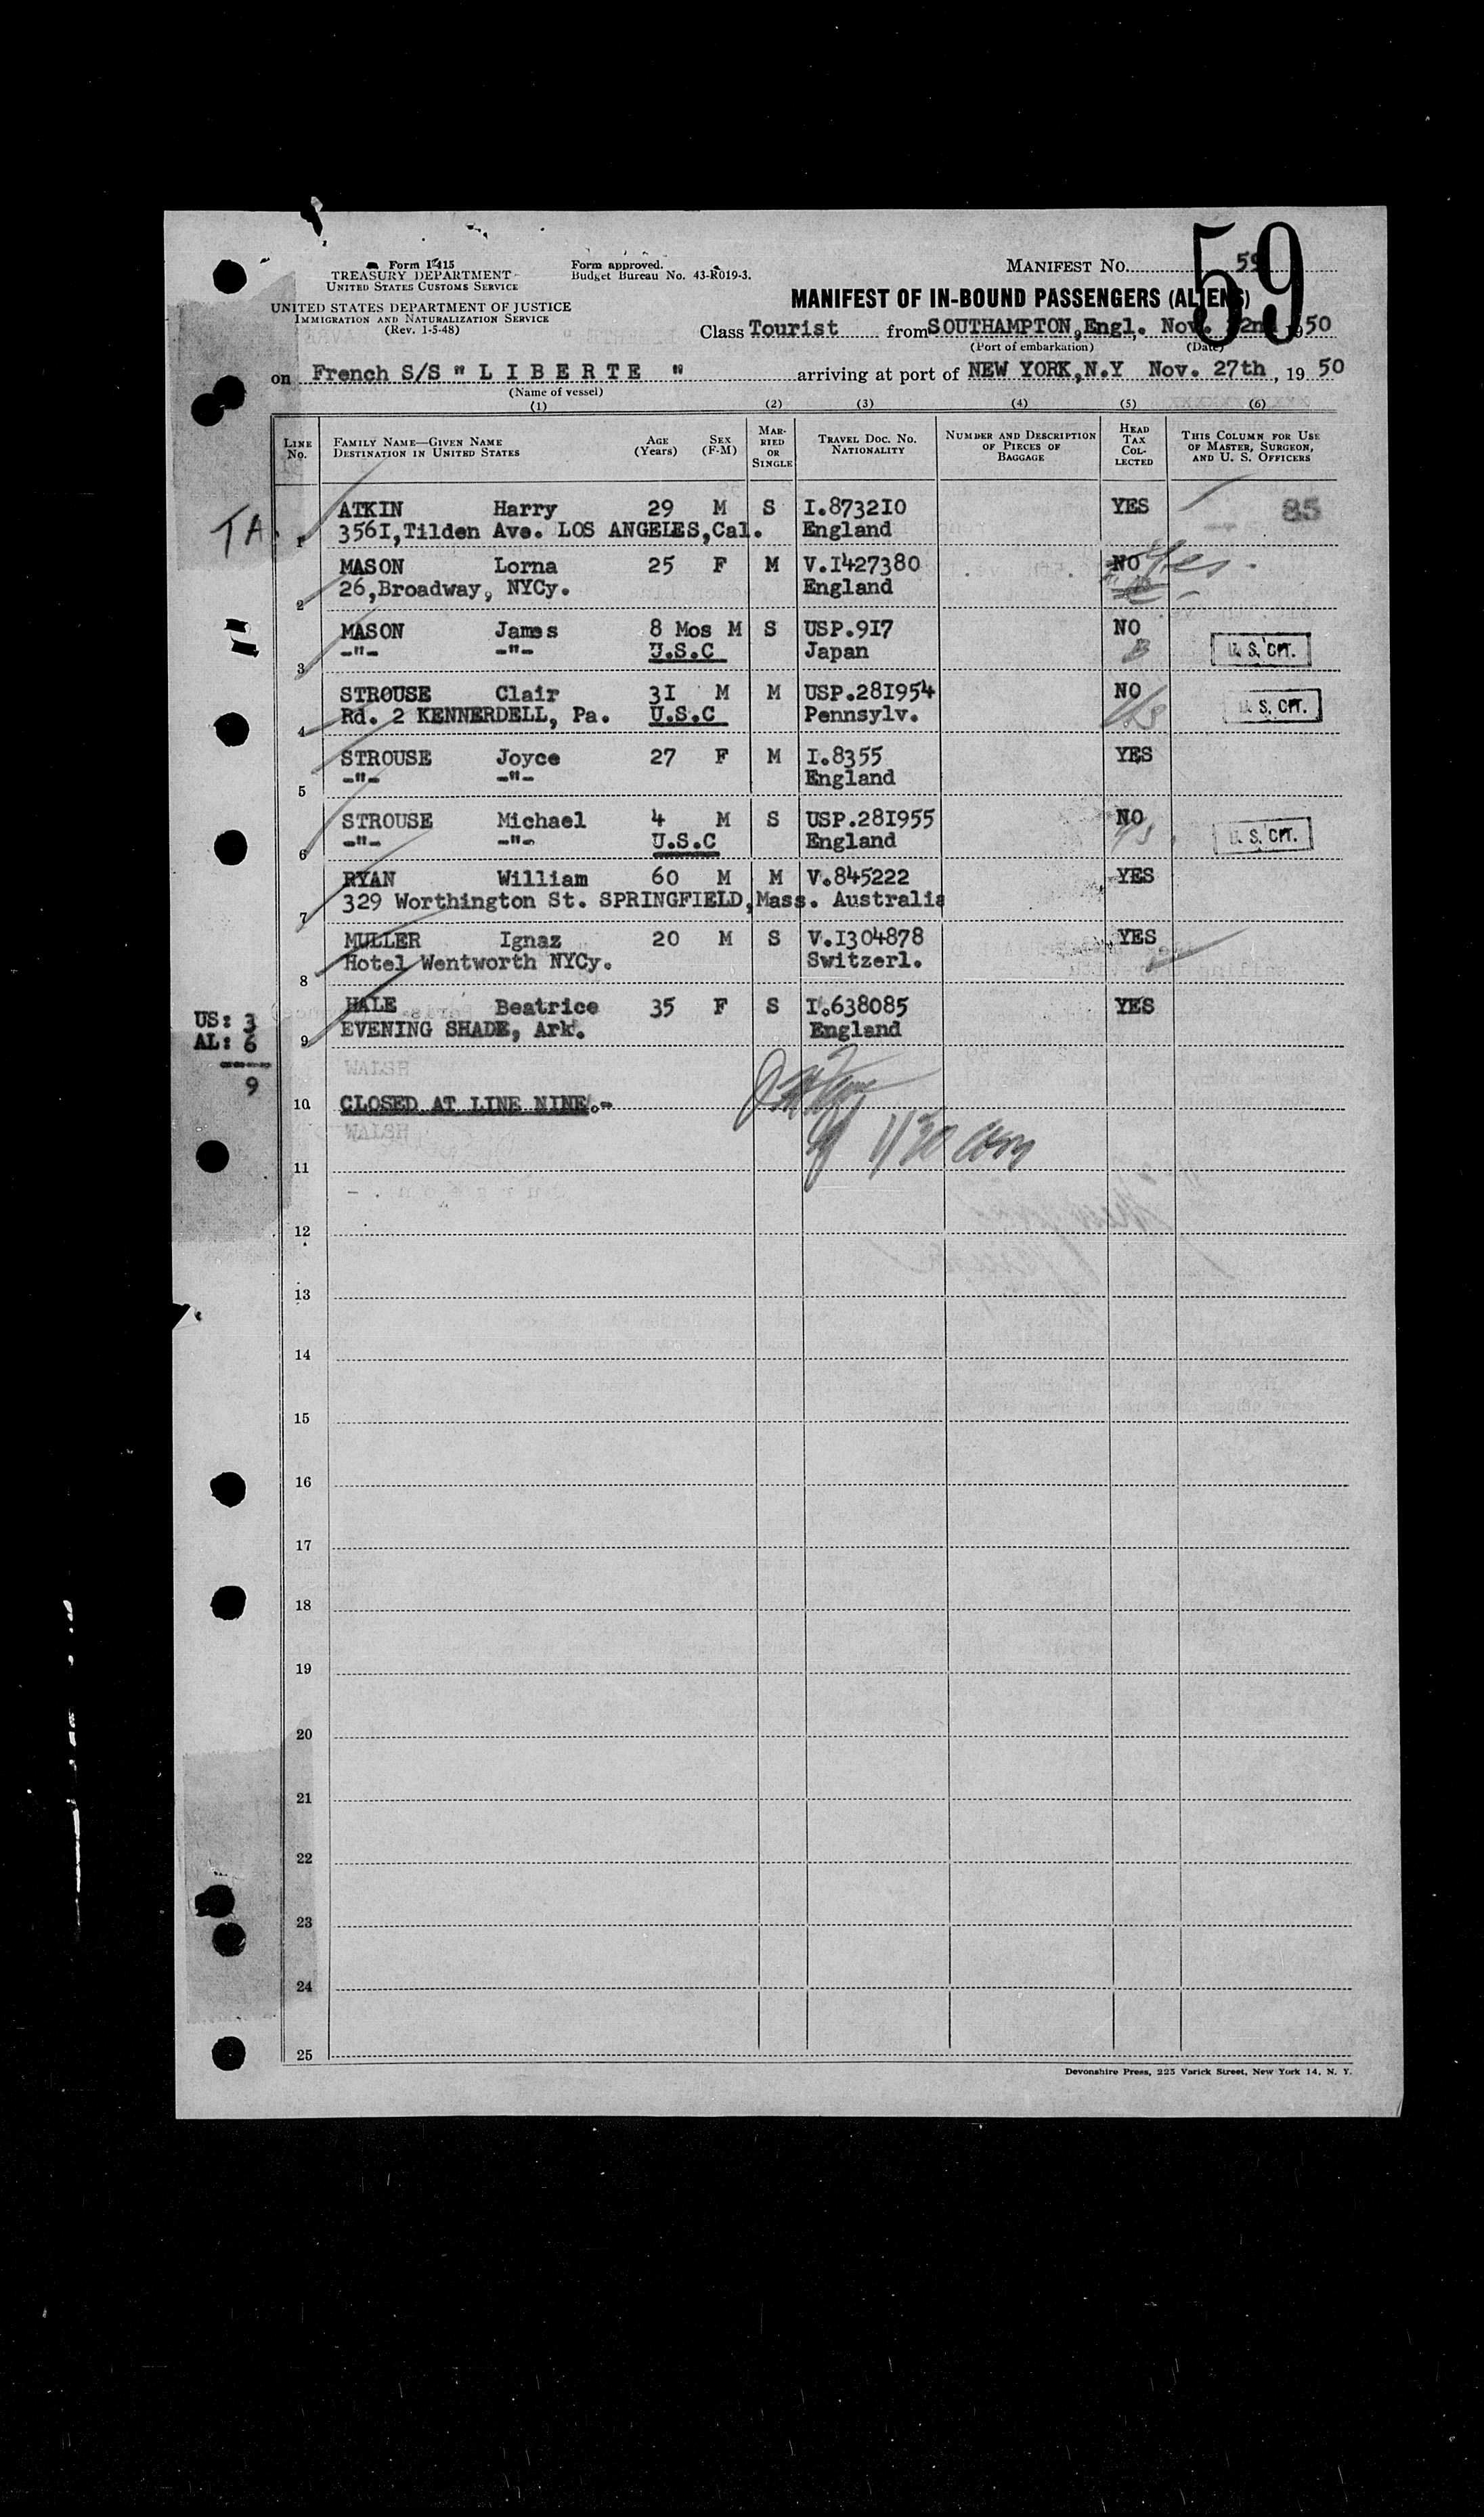 Form I-415
TREASURY DEPARTMENT
UNITED STATES CUSTOMS SERVICE
UNITED STATES DEPARTMENT OF JUSTICE
IMMIGRATION AND NATURALIZATION SERVICE
(Rev. 1-5-48)
Form approved.
Budget Bureau No. 43-R019-3.
MANIFEST NO. 59
59
MANIFEST OF IN-BOUND PASSENGERS (ALIENS)
Class Tourist from SOUTHAMPTON, Engl. Nov. 22nd 1950
(Port of embarkation) (Date)
on French S/S " L I B E R T E " arriving at port of NEW YORK,N.Y Nov. 27th, 19 50
(Name of vessel)
(1) (2) (3) (4) (5) (6)
LINE No. FAMILY NAME—GIVEN NAME DESTINATION IN UNITED STATES AGE (Years) SEX (F-M) MARRIED OR SINGLE TRAVEL DOC. NO. NATIONALITY NUMBER AND DESCRIPTION OF PIECES OF BAGGAGE HEAD TAX COLLECTED THIS COLUMN FOR USE OF MASTER, SURGEON, AND U. S. OFFICERS
ATKIN Harry 29 M S I.873210 YES 85
TA. 1 3561,Tilden Ave. LOS ANGELES,Cal. England
MASON Lorna 25 F M V.I427380 NO Yes.
2 26,Broadway, NYCy. England
MASON James 8 Mos M S USP.9I7 NO
3 -"- -"- U.S.C Japan U. S. CIT.
STROUSE Clair 3I M M USP.28I954 NO
4 Rd. 2 KENNERDELL, Pa. U.S.C Pennsylv. U. S. CIT.
STROUSE Joyce 27 F M I.8355 YES
5 -"- -"- England
STROUSE Michael 4 M S USP.28I955 NO
6 -"- -"- U.S.C England U. S. CIT.
RYAN William 60 M M V.845222 YES
7 329 Worthington St. SPRINGFIELD,Mass. Australia
MULLER Ignaz 20 M S V.I304878 YES
8 Hotel Wentworth NYCy. Switzerl.
HALE Beatrice 35 F S I.638085 YES
9 EVENING SHADE, Ark. England
US: 3
AL: 6
----
9
WALSH
10 CLOSED AT LINE NINE.-
WALSH
1130 am
11
12
13
14
15
16
17
18
19
20
21
22
23
24
25
Devonshire Press, 225 Varick Street, New York 14, N. Y.